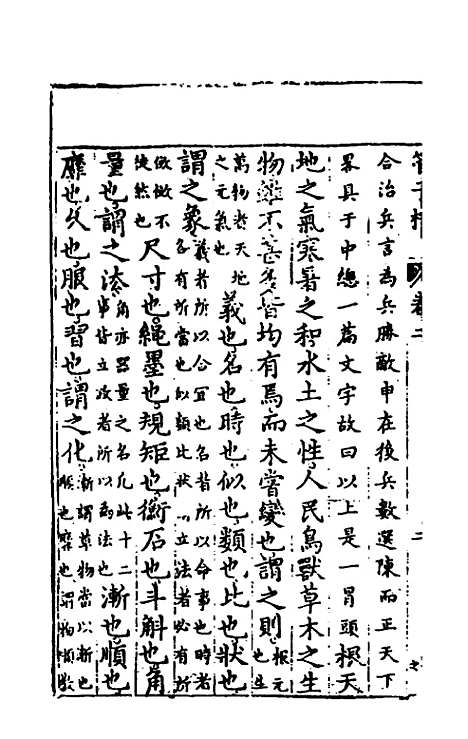 管子榷 卷二 二
合治兵言為兵勝敵申在後兵數選陳而正天下
畧具于中總一篇文字故曰以上是一冒頭根天
地之氣寒暑之和水土之性人民鳥獸草木之生
物雖不甚多皆均有焉而未嘗變也謂之則根元也生
萬物者天地之元氣也義也名也時也似也類也比也狀也
謂之象義者所以合宜也名者所以命事也時者名有所當也似類比狀立法者必有所
倣傚不徒然也尺寸也繩墨也規矩也衡石也斗斛也角
量也謂之法角亦器量之名凡此十二事皆立政者所以為法也漸也順也
靡也久也服也習也謂之化漸謂革物當以漸也順也靡也謂物順教